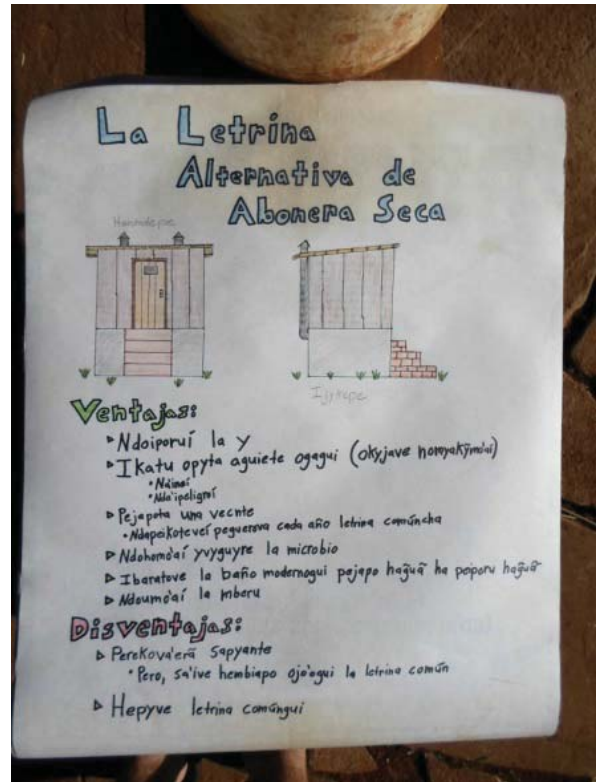 La Letrina
Alternativa de
Abonera Seca
Ventajas:
Ndoiporuí la y
Ikatu opyta aguiete ogagui (okyjave nomyakỹmo'ai)
Ndaipeligroí
Pejapota una vecnte
Ndapeikotevei peguerova cada año letrina comúncha
Ndohomo'aí yvyguyre la microbio
Ibaratove la baño modernogui pejapo hag̃uã ha peiporu hag̃uã
Ndoumo'aí la mberu
Disventajas:
Perekova'erã sapyante
Pero, sa'ive hembiapo ojo'ogui la letrina común
Hepyve letrina comúngui